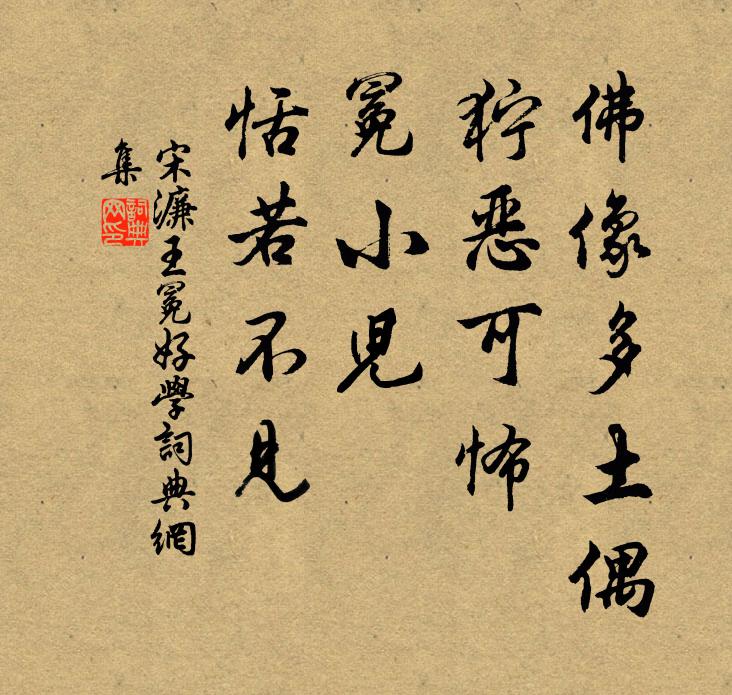 佛像多土偶
狞恶可怖
冕小児
恬若不見
宋濂王冕好學詞典網
集
詞典网印